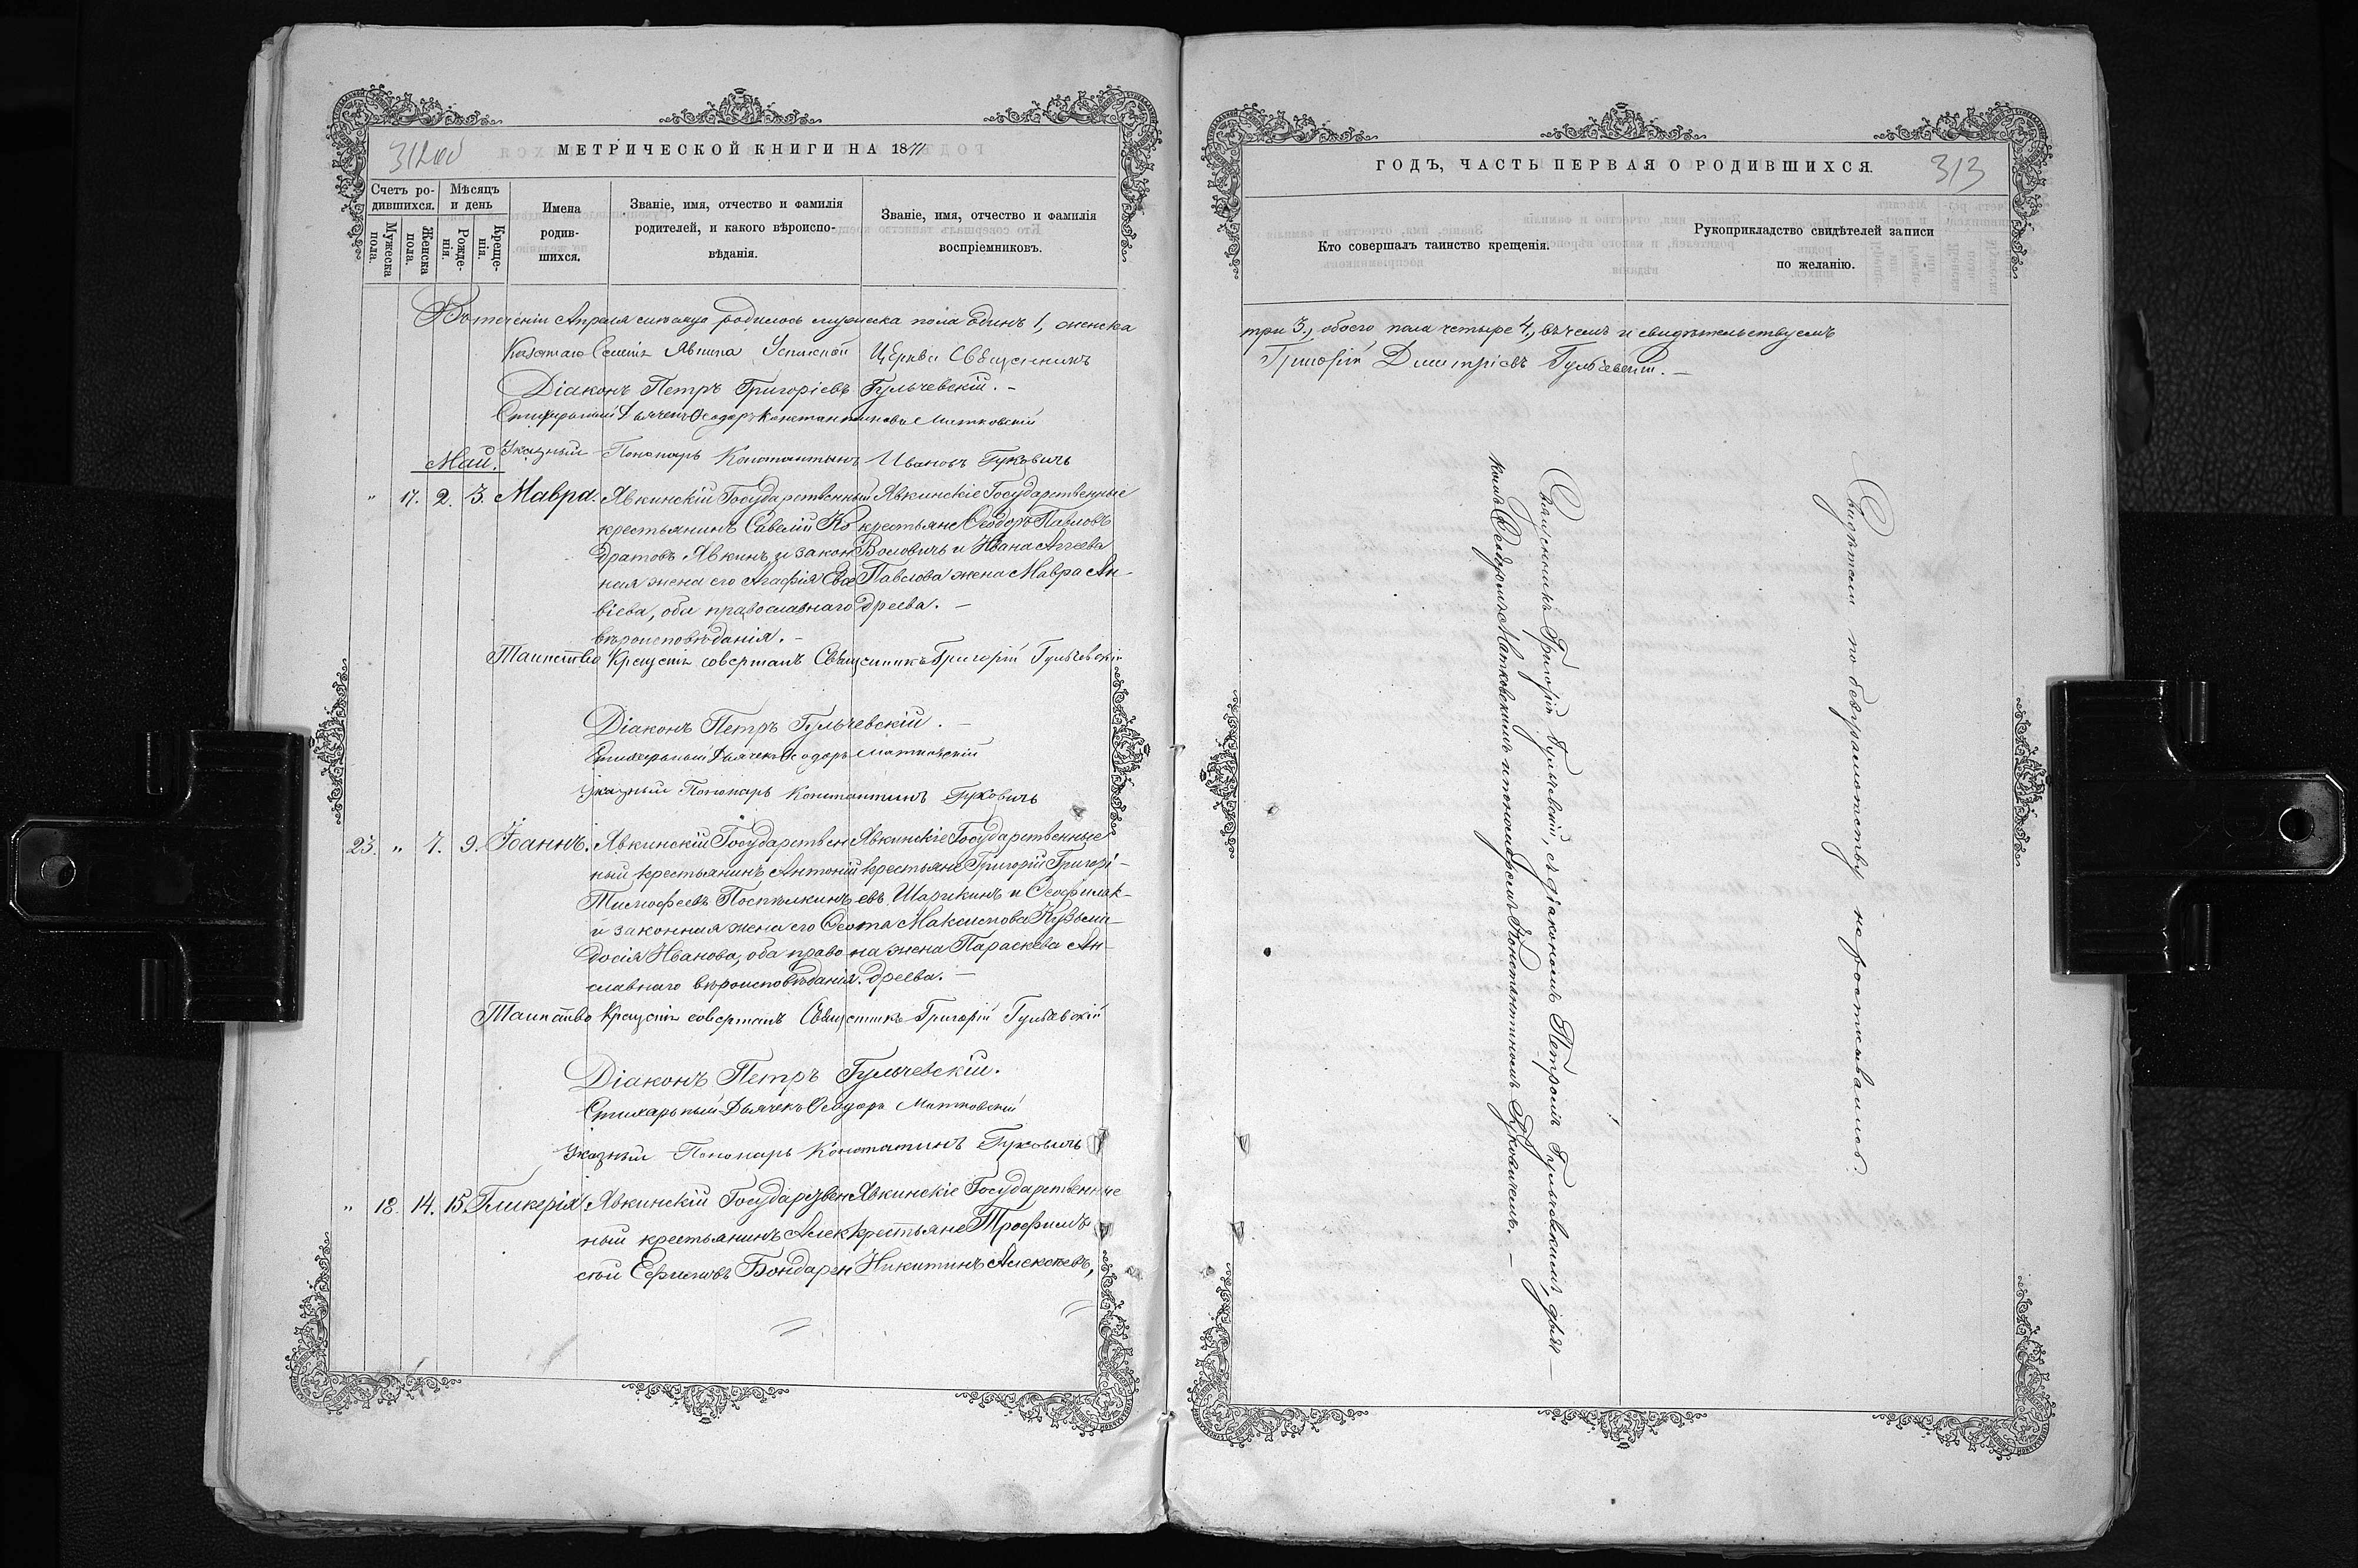 МЕТРИЧЕСКОЙ КНИГИ НА 18
Счетъ ро-
дившихся.
Мужеска
пола.
Женска
пола.
Мѣсяцъ
и день
Рожде-
нія.
Креще-
нія.
Имена
родив-
шихся.
Званіе, имя, отчество и фамилія
родителей, и какого вѣроиспо-
вѣданія.
Званіе, имя, отчество и фамилія
воспріемниковъ.
Въ теченіи Апрѣля мѣсяца родилось мужеска пола одинъ 1, женска
Явкина Успенской Церкви Священникъ
Діаконъ Петръ Григоріевъ Гульчевскій. –
Стихарный Дьячекъ Ѳеодоръ Константиновъ Матковскій
Указный Пономарь Константинъ Ивановъ Гуковичъ
Май.
" 17. 2. 3. Мавра. Явкинскій Государственный
крестьянинъ Савелій Ко
дратовъ Явкинъ, и закон
ная жена его Агафія Сав
віева, оба православнаго
вѣроисповѣданія. –
Явкинскіе Государственные
крестьяне Ѳеодоръ Павловъ
Воловичъ и Ивана Агѣева
Павлова жена Мавра Ан-
дреева. –
Таинство Крещенія совершалъ Священникъ Григорій Гульчевскій
Діаконъ Петръ Гульчевскій. –
Стихарный Дьячекъ Ѳеодоръ Матковскій
Указный Пономарь Константинъ Гуковичъ
23. " 7. 9. Іоаннъ. Явкинскій Государствен
ный крестьянинъ Антоній
Тимофеевъ Поспѣлкинъ
и законная жена его Ѳео
досія Иванова, оба право
славнаго вѣроисповѣданія.
Явкинскіе Государственные
крестьяне Григорій Григорі-
евъ Шарикинъ и Ѳеофилак-
та Максимова Кузьми-
на жена Параскева Ан-
дреева. –
Таинство Крещенія совершалъ Священникъ Григорій Гульчевскій
Діаконъ Петръ Гульчевскій.
Стихарный Дьячекъ Ѳеодоръ Матковскій
Указный Пономарь Константинъ Гуковичъ
" 18. 14. 15. Гликерія. Явкинскій Государствен
ный крестьянинъ Алек
сѣй Ефимовъ Бондарен
Явкинскіе Государственные
крестьяне Трофимъ
Никитинъ Алексѣевъ,
ГОДЪ, ЧАСТЬ ПЕРВАЯ О РОДИВШИХСЯ.
313
Кто совершалъ таинство крещенія.
Рукоприкладство свидѣтелей записи
по желанію.
три 3., обоего пола четыре 4., въ чемъ и свидѣтельствуемъ
Григорій Дмитріевъ Гульчевскій. –
Священникъ Григорій Гульчевскій, съ діакономъ Петромъ Гульчевскимъ, дьяч–
комъ Ѳеодоромъ Матковскимъ и пономаремъ Константиномъ Гуковичемъ. –
Свидѣтели по безграмотству не росписывались.